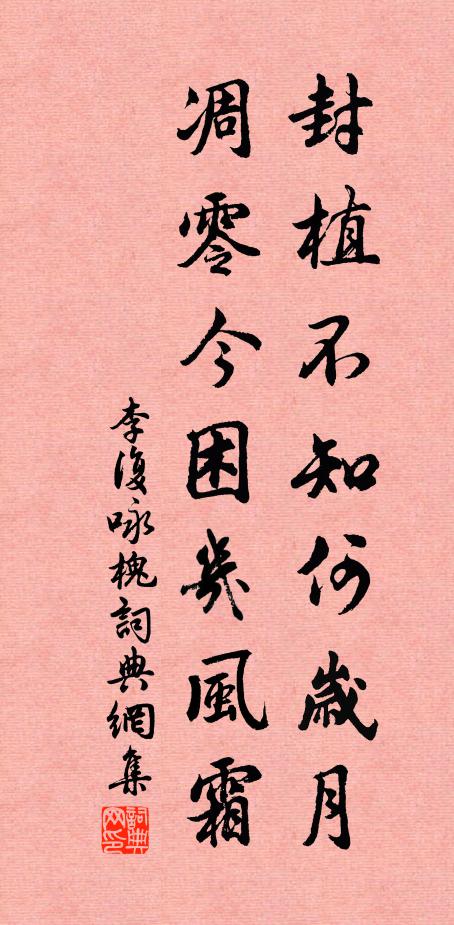 封植不知何歲月
凋零今困幾風霜
李復咏槐詞典網集
詞典网印